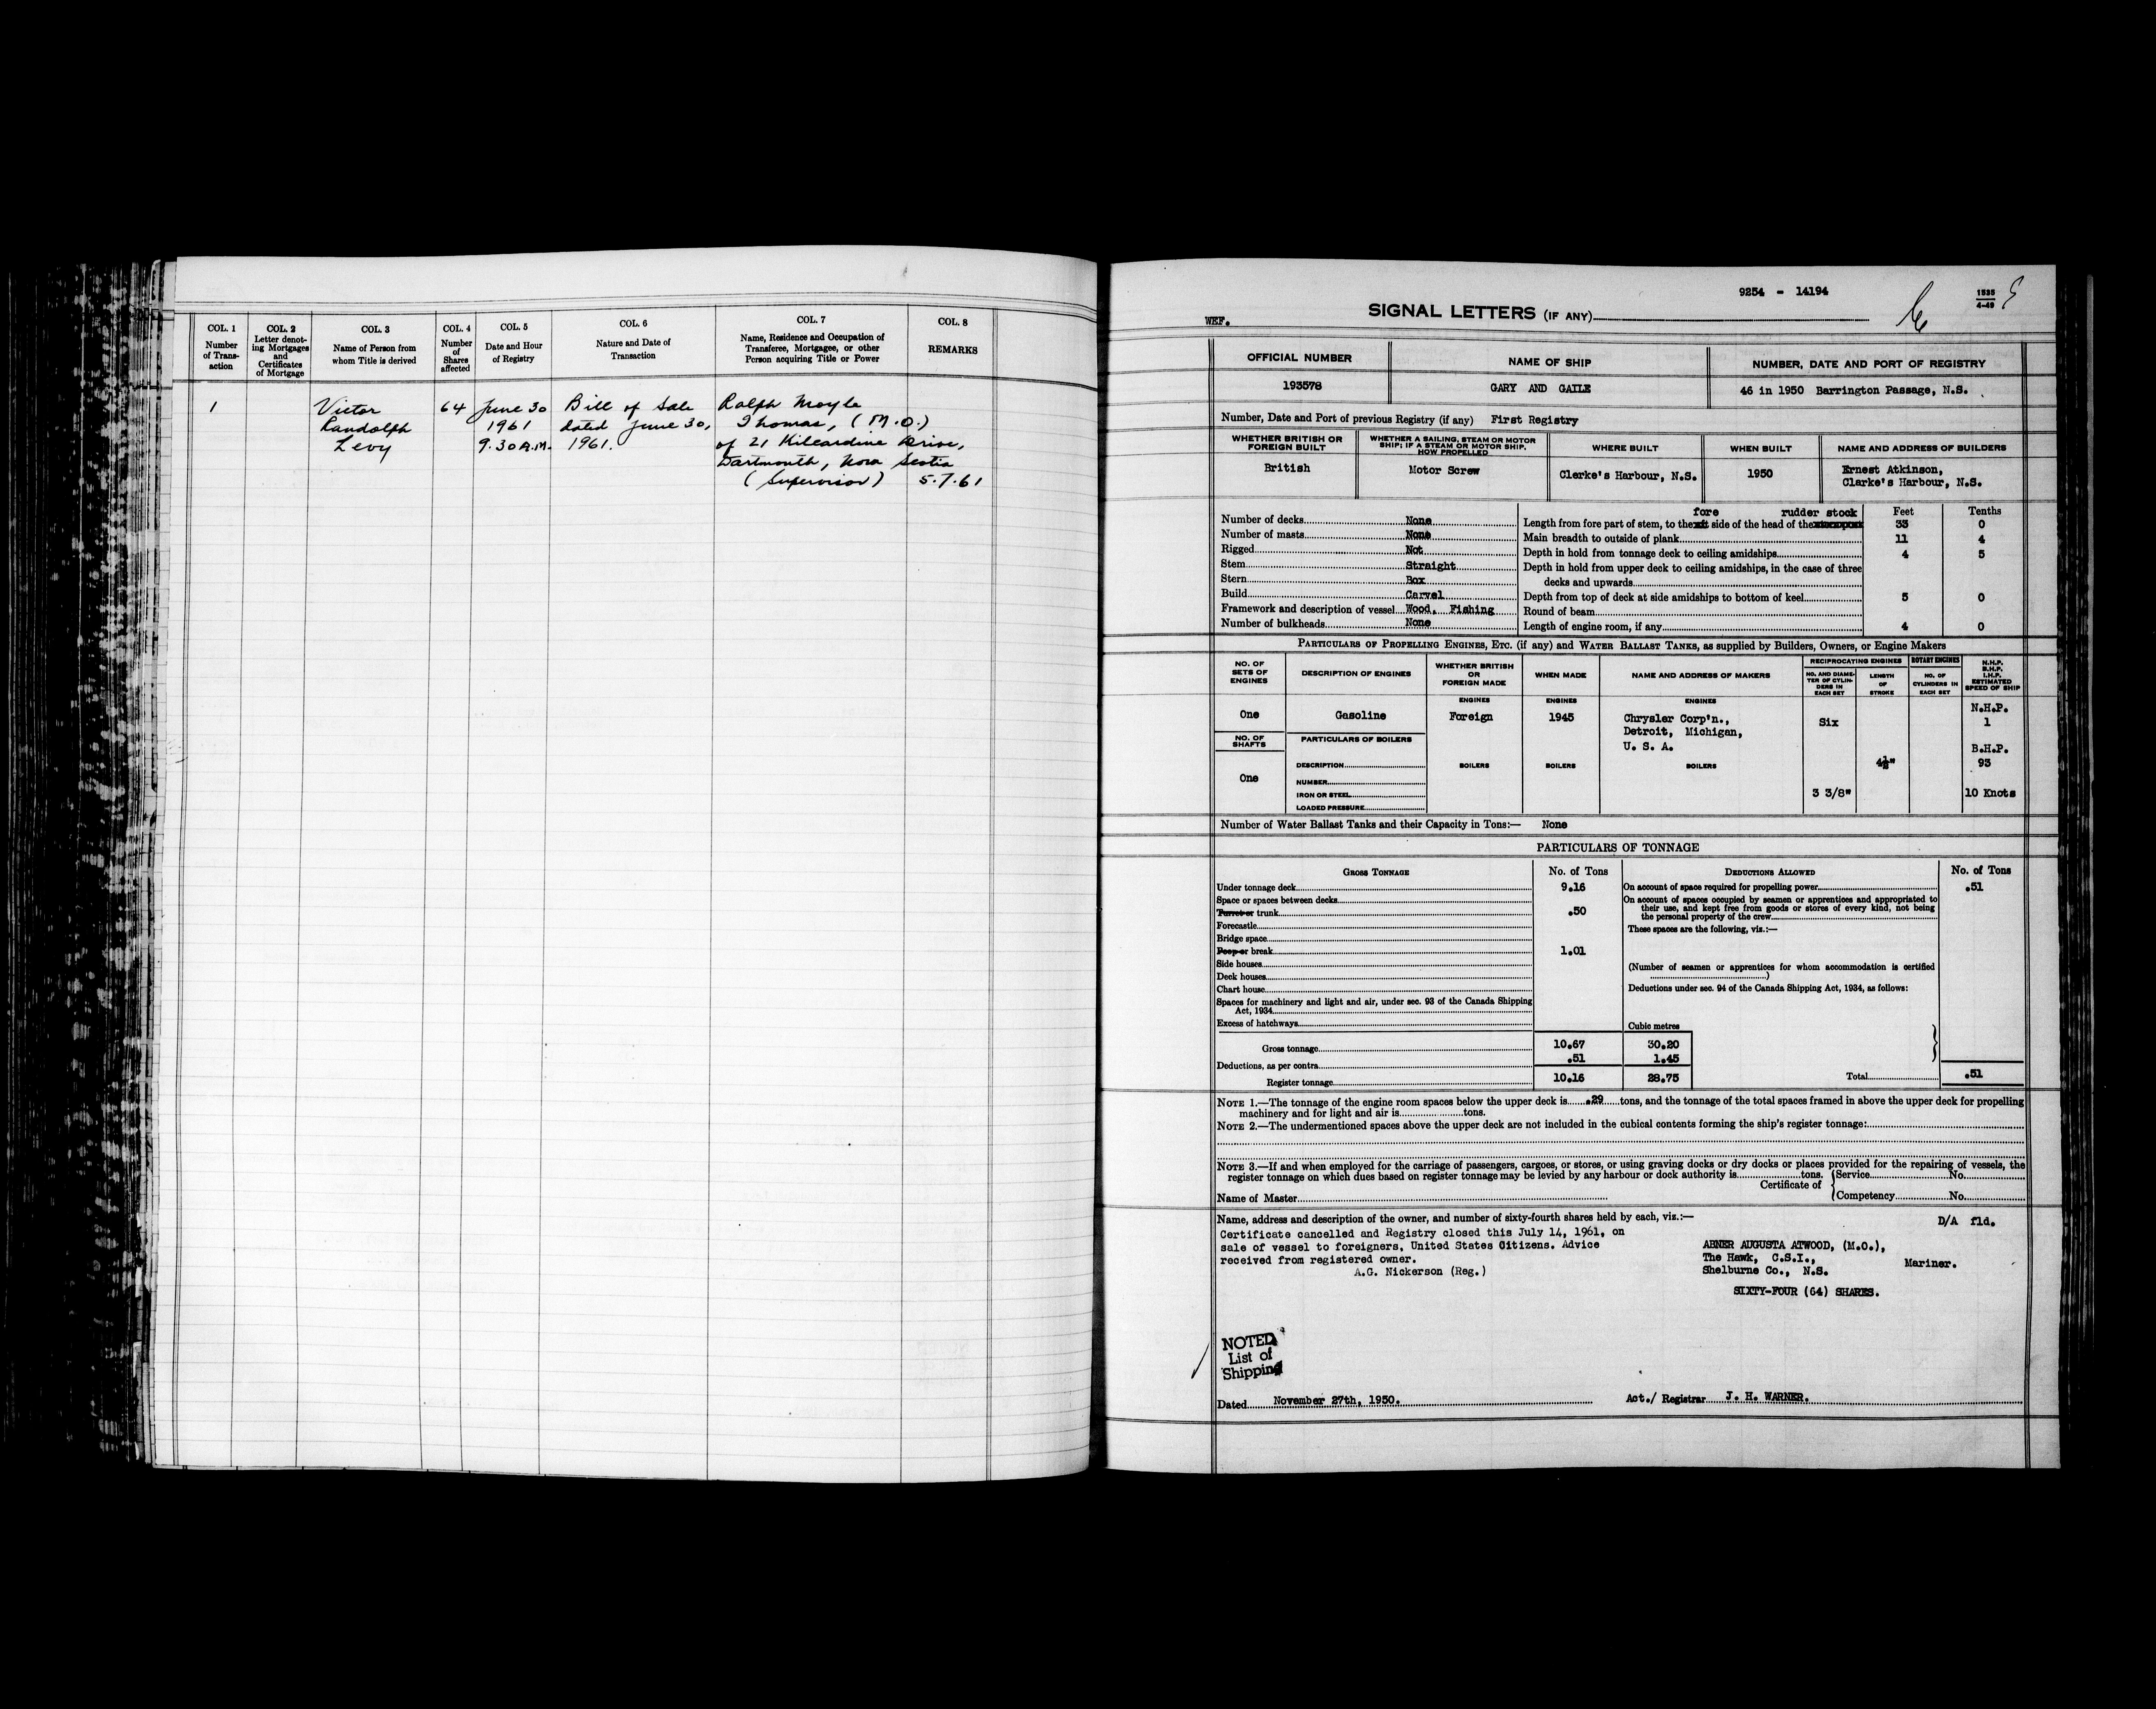 COL. 1
Number
of Trans-
action
COL. 2
Letter denot-
ing Mortgages
and
Certificates
of Mortgage
COL. 3
Name of Person from
whom Title is derived
COL. 4
Number
of
Shares
affected
COL. 5
Date and Hour
of Registry
COL. 6
Nature and Date of
Transaction
COL. 7
Name, Residence and Occupation of
Transferee, Mortgagee, or other
Person acquiring Title or Power
COL. 8
REMARKS
1 Victor 64 June 30 Bill of Sale Ralph Moyle
Randolph 1961 dated June 30, Thomas, (M.O.)
Levy 9.30 A.M. 1961. of 21 Kilcardine Drive,
Dartmouth, Nova Scotia
(Supervisor) 5.7.61
9254 - 14194
1535
4-49
WEF.
SIGNAL LETTERS (IF ANY)
OFFICIAL NUMBER
193578
NAME OF SHIP
GARY AND GAILE
NUMBER, DATE AND PORT OF REGISTRY
46 in 1950 Barrington Passage, N.S.
Number, Date and Port of previous Registry (if any) First Registry
WHETHER BRITISH OR
FOREIGN BUILT
British
WHETHER A SAILING, STEAM OR MOTOR
SHIP; IF A STEAM OR MOTOR SHIP,
HOW PROPELLED
Motor Screw
WHERE BUILT
Clarke's Harbour, N.S.
WHEN BUILT
1950
NAME AND ADDRESS OF BUILDERS
Ernest Atkinson,
Clarke's Harbour, N.S.
Number of decks None
Number of masts None
Rigged Not
Stem Straight
Stern Box
Build Carvel
Framework and description of vessel Wood. Fishing
Number of bulkheads None
Feet Tenths
fore rudder stock
Length from fore part of stem, to the aft side of the head of the sternpost 33 0
Main breadth to outside of plank 11 4
Depth in hold from tonnage deck to ceiling amidships 4 5
Depth in hold from upper deck to ceiling amidships, in the case of three
decks and upwards
Depth from top of deck at side amidships to bottom of keel 5 0
Round of beam
Length of engine room, if any 4 0
PARTICULARS OF PROPELLING ENGINES, ETC. (if any) and WATER BALLAST TANKS, as supplied by Builders, Owners, or Engine Makers
NO. OF
SETS OF
ENGINES
One
NO. OF
SHAFTS
One
DESCRIPTION OF ENGINES
Gasoline
PARTICULARS OF BOILERS
DESCRIPTION
NUMBER
IRON OR STEEL
LOADED PRESSURE
WHETHER BRITISH
OR
FOREIGN MADE
ENGINES
Foreign
BOILERS
WHEN MADE
ENGINES
1945
BOILERS
NAME AND ADDRESS OF MAKERS
ENGINES
Chrysler Corp'n.,
Detroit, Michigan,
U. S. A.
BOILERS
RECIPROCATING ENGINES
NO. AND DIAME-
TER OF CYLIN-
DERS IN
EACH SET
Six
3 3/8"
LENGTH
OF
STROKE
4½"
ROTARY ENGINES
NO. OF
CYLINDERS IN
EACH SET
N.H.P.
B.H.P.
I.H.P.
ESTIMATED
SPEED OF SHIP
N.H.P.
1
B.H.P.
93
10 Knots
Number of Water Ballast Tanks and their Capacity in Tons:— None
PARTICULARS OF TONNAGE
GROSS TONNAGE No. of Tons
Under tonnage deck 9.16
Space or spaces between decks
Turret or trunk .50
Forecastle
Bridge space
Poop or break 1.01
Side houses
Deck houses
Chart house
Spaces for machinery and light and air, under sec. 93 of the Canada Shipping
Act, 1934
Excess of hatchways
Cubic metres
Gross tonnage 10.67 30.20
Deductions, as per contra .51 1.45
Register tonnage 10.16 28.75
DEDUCTIONS ALLOWED No. of Tons
On account of space required for propelling power .51
On account of spaces occupied by seamen or apprentices and appropriated to
their use, and kept free from goods or stores of every kind, not being
the personal property of the crew
These spaces are the following, viz.:—
(Number of seamen or apprentices for whom accommodation is certified
)
Deductions under sec. 94 of the Canada Shipping Act, 1934, as follows:
Total .51
NOTE 1.—The tonnage of the engine room spaces below the upper deck is .29 tons, and the tonnage of the total spaces framed in above the upper deck for propelling
machinery and for light and air is tons.
NOTE 2.—The undermentioned spaces above the upper deck are not included in the cubical contents forming the ship's register tonnage:
NOTE 3.—If and when employed for the carriage of passengers, cargoes, or stores, or using graving docks or dry docks or places provided for the repairing of vessels, the
register tonnage on which dues based on register tonnage may be levied by any harbour or dock authority is tons.
Certificate of
Service No.
Competency No.
Name of Master
Name, address and description of the owner, and number of sixty-fourth shares held by each, viz.:—
D/A fld.
Certificate cancelled and Registry closed this July 14, 1961, on
sale of vessel to foreigners, United States Citizens. Advice
received from registered owner.
A.G. Nickerson (Reg.)
ABNER AUGUSTA ATWOOD, (M.O.),
The Hawk, C.S.I.,
Shelburne Co., N.S.
Mariner.
SIXTY-FOUR (64) SHARES.
NOTED
List of
Shipping
Dated November 27th, 1950.
Act./ Registrar J. H. WARNER.